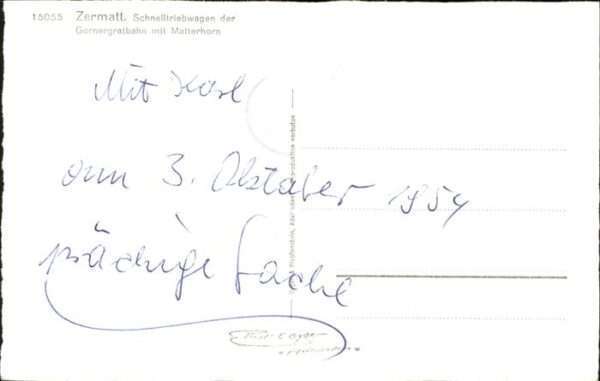 15055 Zermatt. Schnelltriebwagen der
Gornergratbahn mit Matterhorn
Mit Karl
am 3. Oktober 1954
prächtige Sache